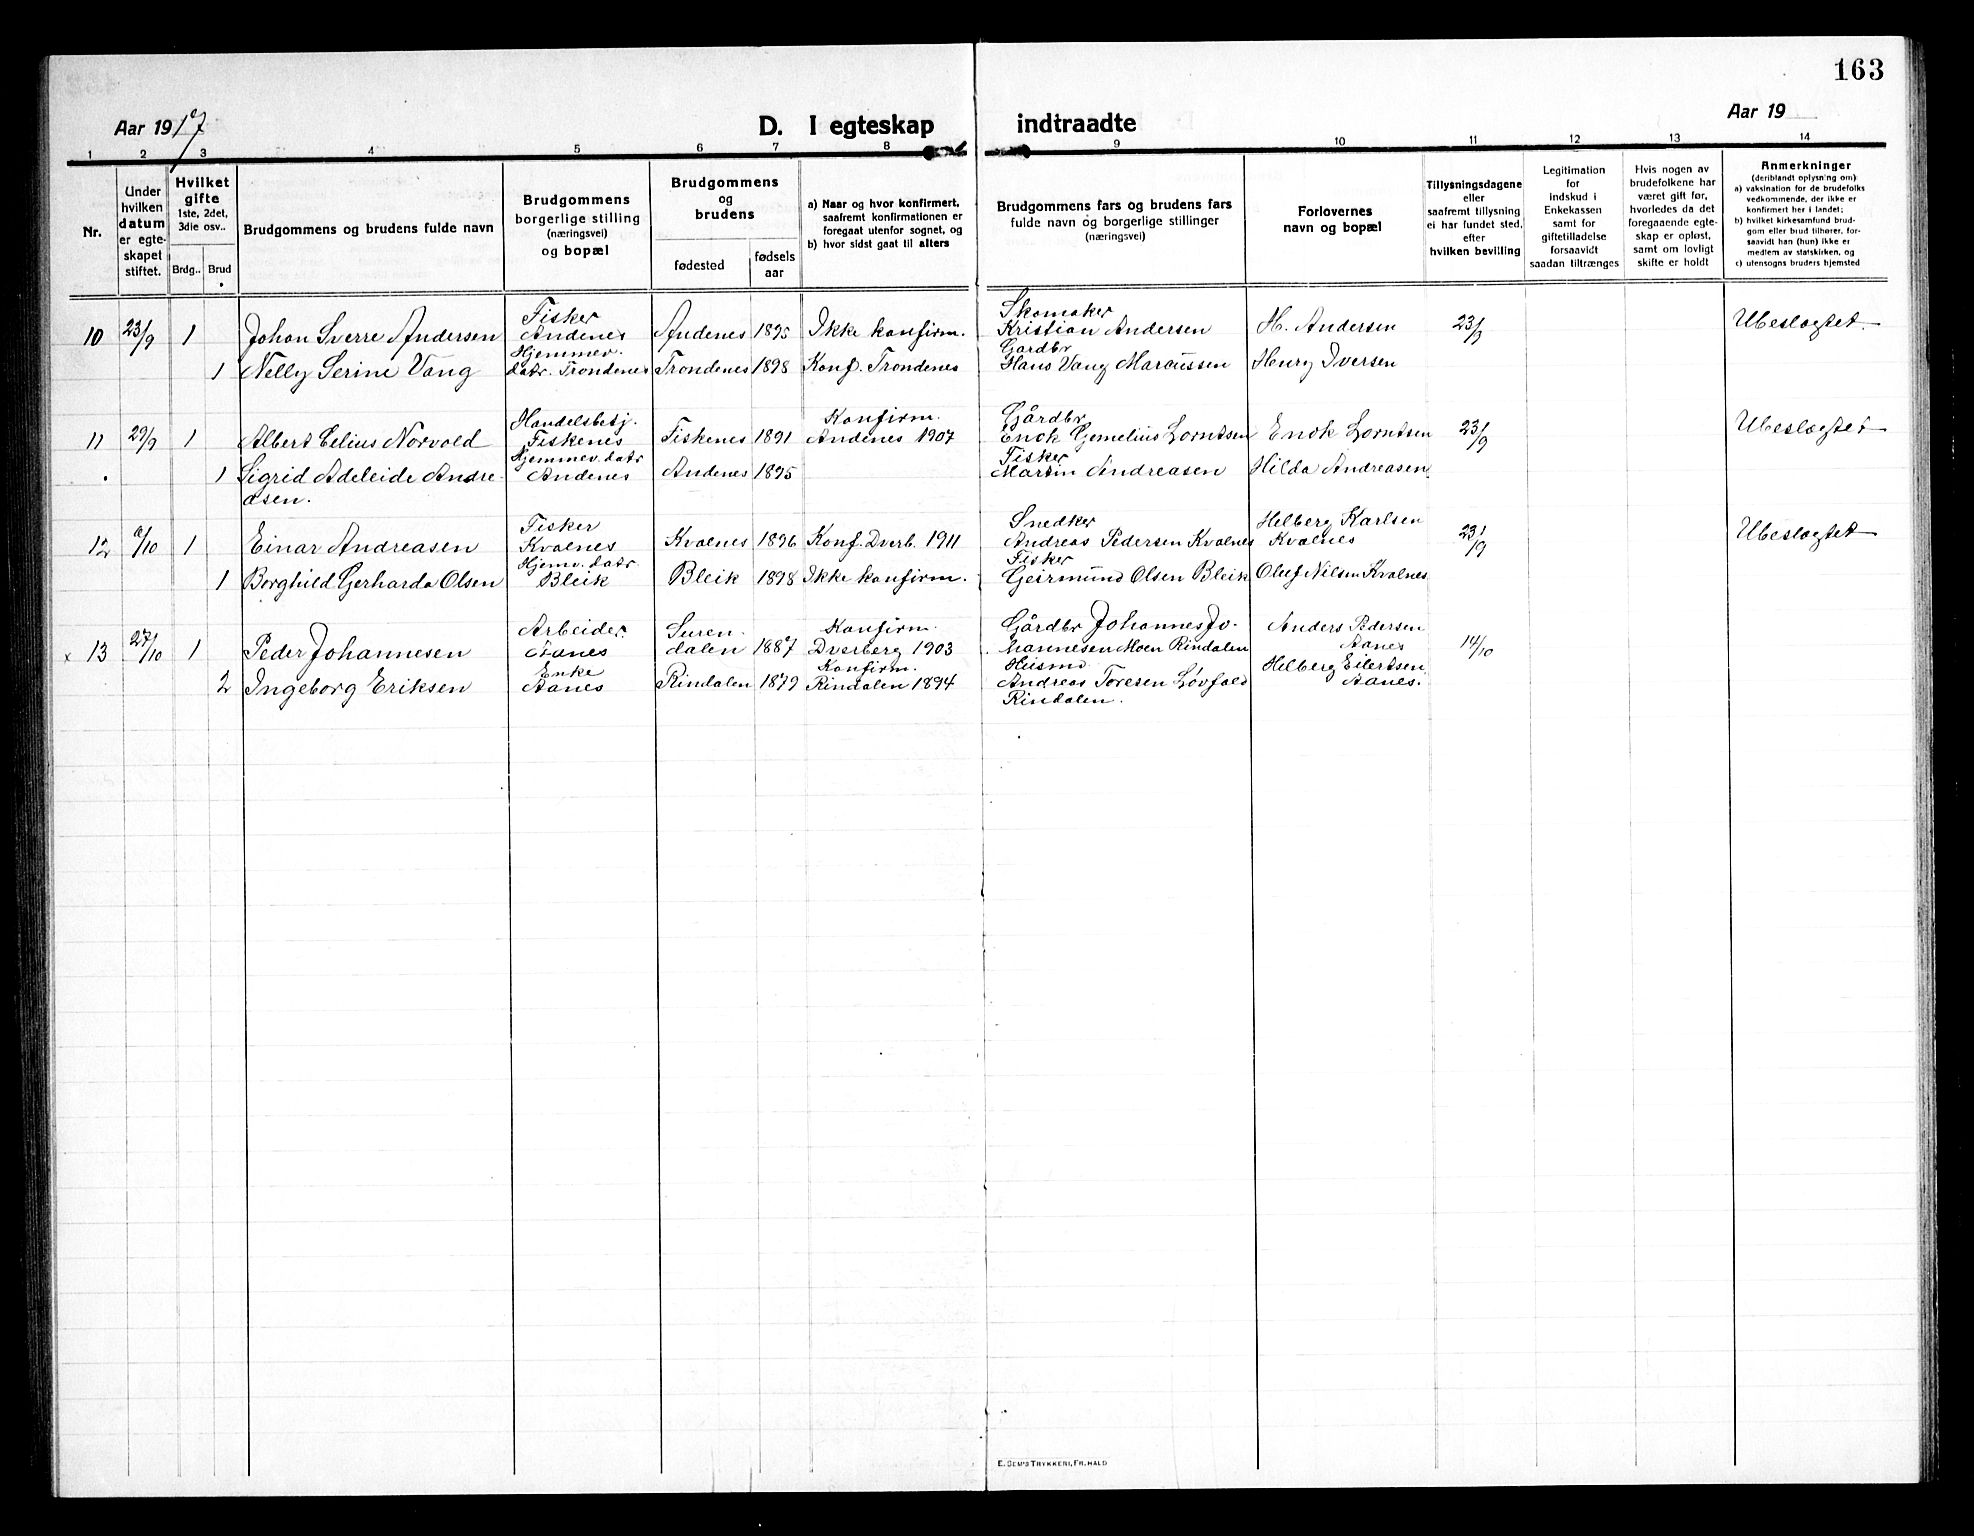 163
Aar 1917
D. I egteskap indtraadte
Aar 19
1 2 3 4 5 6 7 8 9 10 11 12 13 14
Nr.
Under hvilken datum er egteskapet stiftet.
Hvilket gifte
1ste, 2det, 3die osv..
Brdg.. Brud
Brudgommens og brudens fulde navn
Brudgommens borgerlige stilling (næringsvei) og bopæl
Brudgommens og brudens
fødested
fødsels aar
a) Naar og hvor konfirmert, saafremt konfirmationen er foregaat utenfor sognet, og
b) hvor sidst gaat til alters
Brudgommens fars og brudens fars fulde navn og borgerlige stillinger (næringsvei)
Forlovernes navn og bopæl
Tillysningsdagene eller saafremt tillysning ei har fundet sted, efter hvilken bevilling
Legitimation for Indskud i Enkekassen samt for giftetilladelse forsaavidt saadan tiltrænges
Hvis nogen av brudefolkene har været gift før, hvorledes da det foregaaende egteskap er opløst, samt om lovligt skifte er holdt
Anmerkninger
(deriblandt oplysning om)
a) vaksination for de brudefolks vedkommende, der ikke er konfirmert her i landet;
b) hvilket kirkesamfund brudgom eller brud tilhører, forsaavidt han (hun) ikke er medlem av statskirken, og
c) utensogns bruders hjemsted
10 23/9 1 Johan Sverre Andersen Fisker Andenes Andenes 1895 Ikke konfirm. Skomaker Kristian Andersen H. Andersen 23/9 Ubeslægtet
1 Nelly Serine Vang Hjemmev. datr. Trondenes Trondenes 1898 Konf. Trondenes Gardbr Hans Vang Marcussen Henry Iversen
11 29/9 1 Albert Celius Norvold Handelsbetj. Fiskenes Fiskenes 1891 Konfirm. Andenes 1907 Gårdbr Enok Gemelius Lorntsen Enok Lorntsen 23/9 Ubeslægtet
1 Sigrid Adeleide Andreasen. Hjemmev. datr Andenes Andenes 1895 Fisker Martin Andreasen Hilda Andreasen
12 9/10 1 Einar Andreasen Fisker Kvalnes Kvalnes 1896 Konf. Dverb. 1911 Snedker Andreas Pedersen Kvalnes Helberg Karlsen Kvalnes 23/9 Ubeslægtet
1 Borghild Gerharda Olsen Hjemv. datr Bleik Bleik 1898 Ikke konfirm. Fisker Geirmund Olsen Bleik Oluf Nilsen Kvalnes
x 13 27/10 1 Peder Johannesen Arbeider Aanes Surendalen 1887 Konfirm. Dverberg 1903 Gårdbr Johannes Johannesen Moen Rindalen Anders Pedersen Aanes 14/10
2 Ingeborg Eriksen Enke Aanes Rindalen 1879 Konfirm. Rindalen 1894 Husmd Andreas Toresen Løvfald Rindalen. Helberg Eilertsen Aanes.
E. SEM'S TRYKKERI, FR. HALD